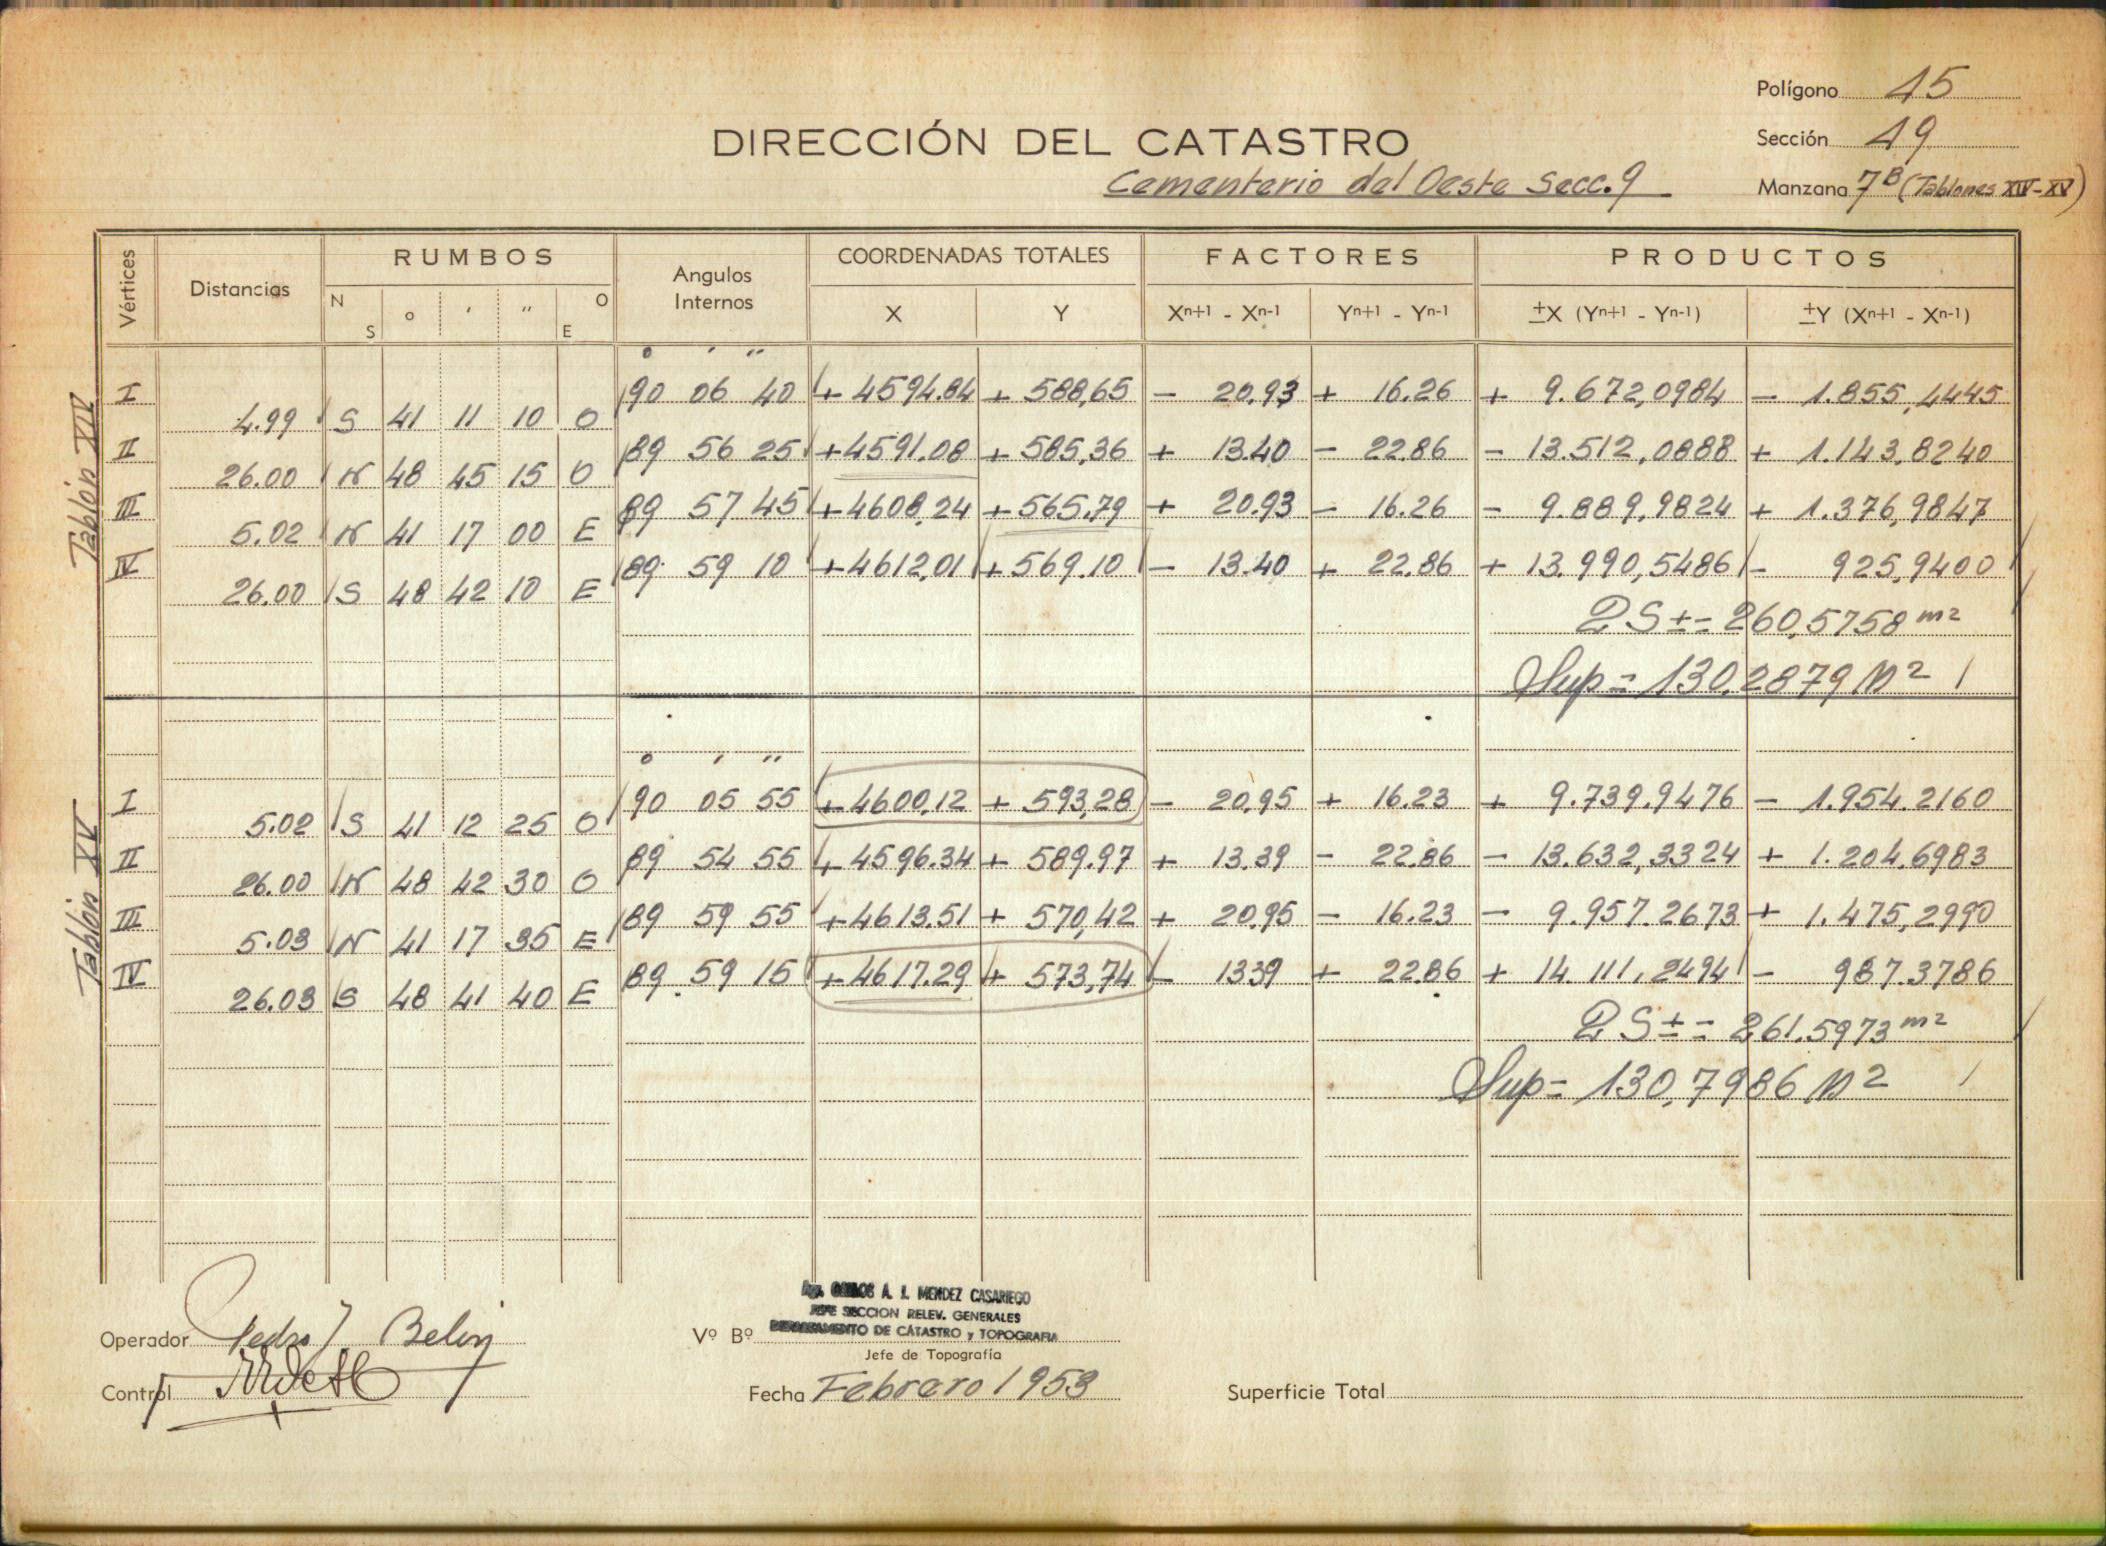 Polígono 45
DIRECCIÓN DEL CATASTRO
Sección 49
Cementerio del Oeste Secc. 9
Manzana 7B (Tablones XIV-XV)
Vértices Distancias RUMBOS Angulos Internos COORDENADAS TOTALES FACTORES PRODUCTOS
N S ° ' " E O X Y Xn+1 - Xn-1 Yn+1 - Yn-1 ±X (Yn+1 - Yn-1) ±Y (Xn+1 - Xn-1)
Tablón XIV
° ' "
I 90 06 40 + 4594.84 + 588,65 - 20.93 + 16.26 + 9.672,0984 - 1.855,4445
4.99 S 41 11 10 O
II 89 56 25 + 4591.08 + 585,36 + 13.40 - 22.86 - 13.512,0888 + 1.143,8240
26.00 N 48 45 15 O
III 89 57 45 + 4608,24 + 565.79 + 20.93 - 16.26 - 9.889,9824 + 1.376,9847
5.02 N 41 17 00 E
IV 89 59 10 + 4612,01 + 569.10 - 13.40 + 22.86 + 13.990,5486 - 925,9400
26.00 S 48 42 10 E
2S ± = 260,5758 m2
Sup = 130,2879 M2
Tablón XV
° ' "
I 90 05 55 + 4600,12 + 593,28 - 20.95 + 16.23 + 9.739.9476 - 1.954.2160
5.02 S 41 12 25 O
II 89 54 55 + 4596.34 + 589.97 + 13.39 - 22.86 - 13.632,3324 + 1.204,6983
26.00 N 48 42 30 O
III 89 59 55 + 4613.51 + 570,42 + 20.95 - 16.23 - 9.957.2673 + 1.475,2990
5.03 N 41 17 35 E
IV 89 59 15 + 4617.29 + 573,74 - 1339 + 22.86 + 14.111,2494 - 987.3786
26.03 S 48 41 40 E
2S ± = 261.5973 m2
Sup = 130,7986 M2
A. I. MENDEZ CASARIEGO
JEFE SECCION RELEV. GENERALES
Operador Pedro J Vº Bº DEPARTAMENTO DE CATASTRO y TOPOGRAFIA
Jefe de Topografía
Control Fecha Febrero 1953 Superficie Total